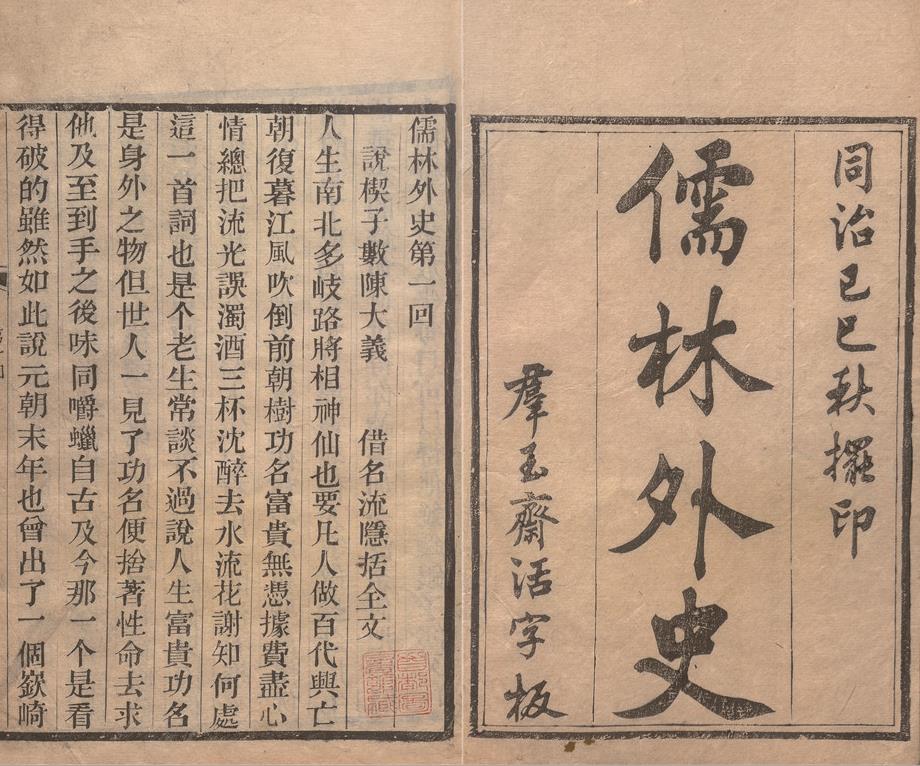 同治己巳秋擺印
儒林外史
羣玉齋活字板
儒林外史第一回
說楔子敷陳大義　借名流隱括全文
人生南北多岐路將相神仙也要凡人做百代興亡
朝復暮江風吹倒前朝樹功名富貴無憑據費盡心
情總把流光誤濁酒三杯沈醉去水流花謝知何處
這一首詞也是个老生常談不過說人生富貴功名
是身外之物但世人一見了功名便捨著性命去求
他及至到手之後味同嚼蠟自古及今那一个是看
得破的雖然如此說元朝末年也曾出了一個嶔崎